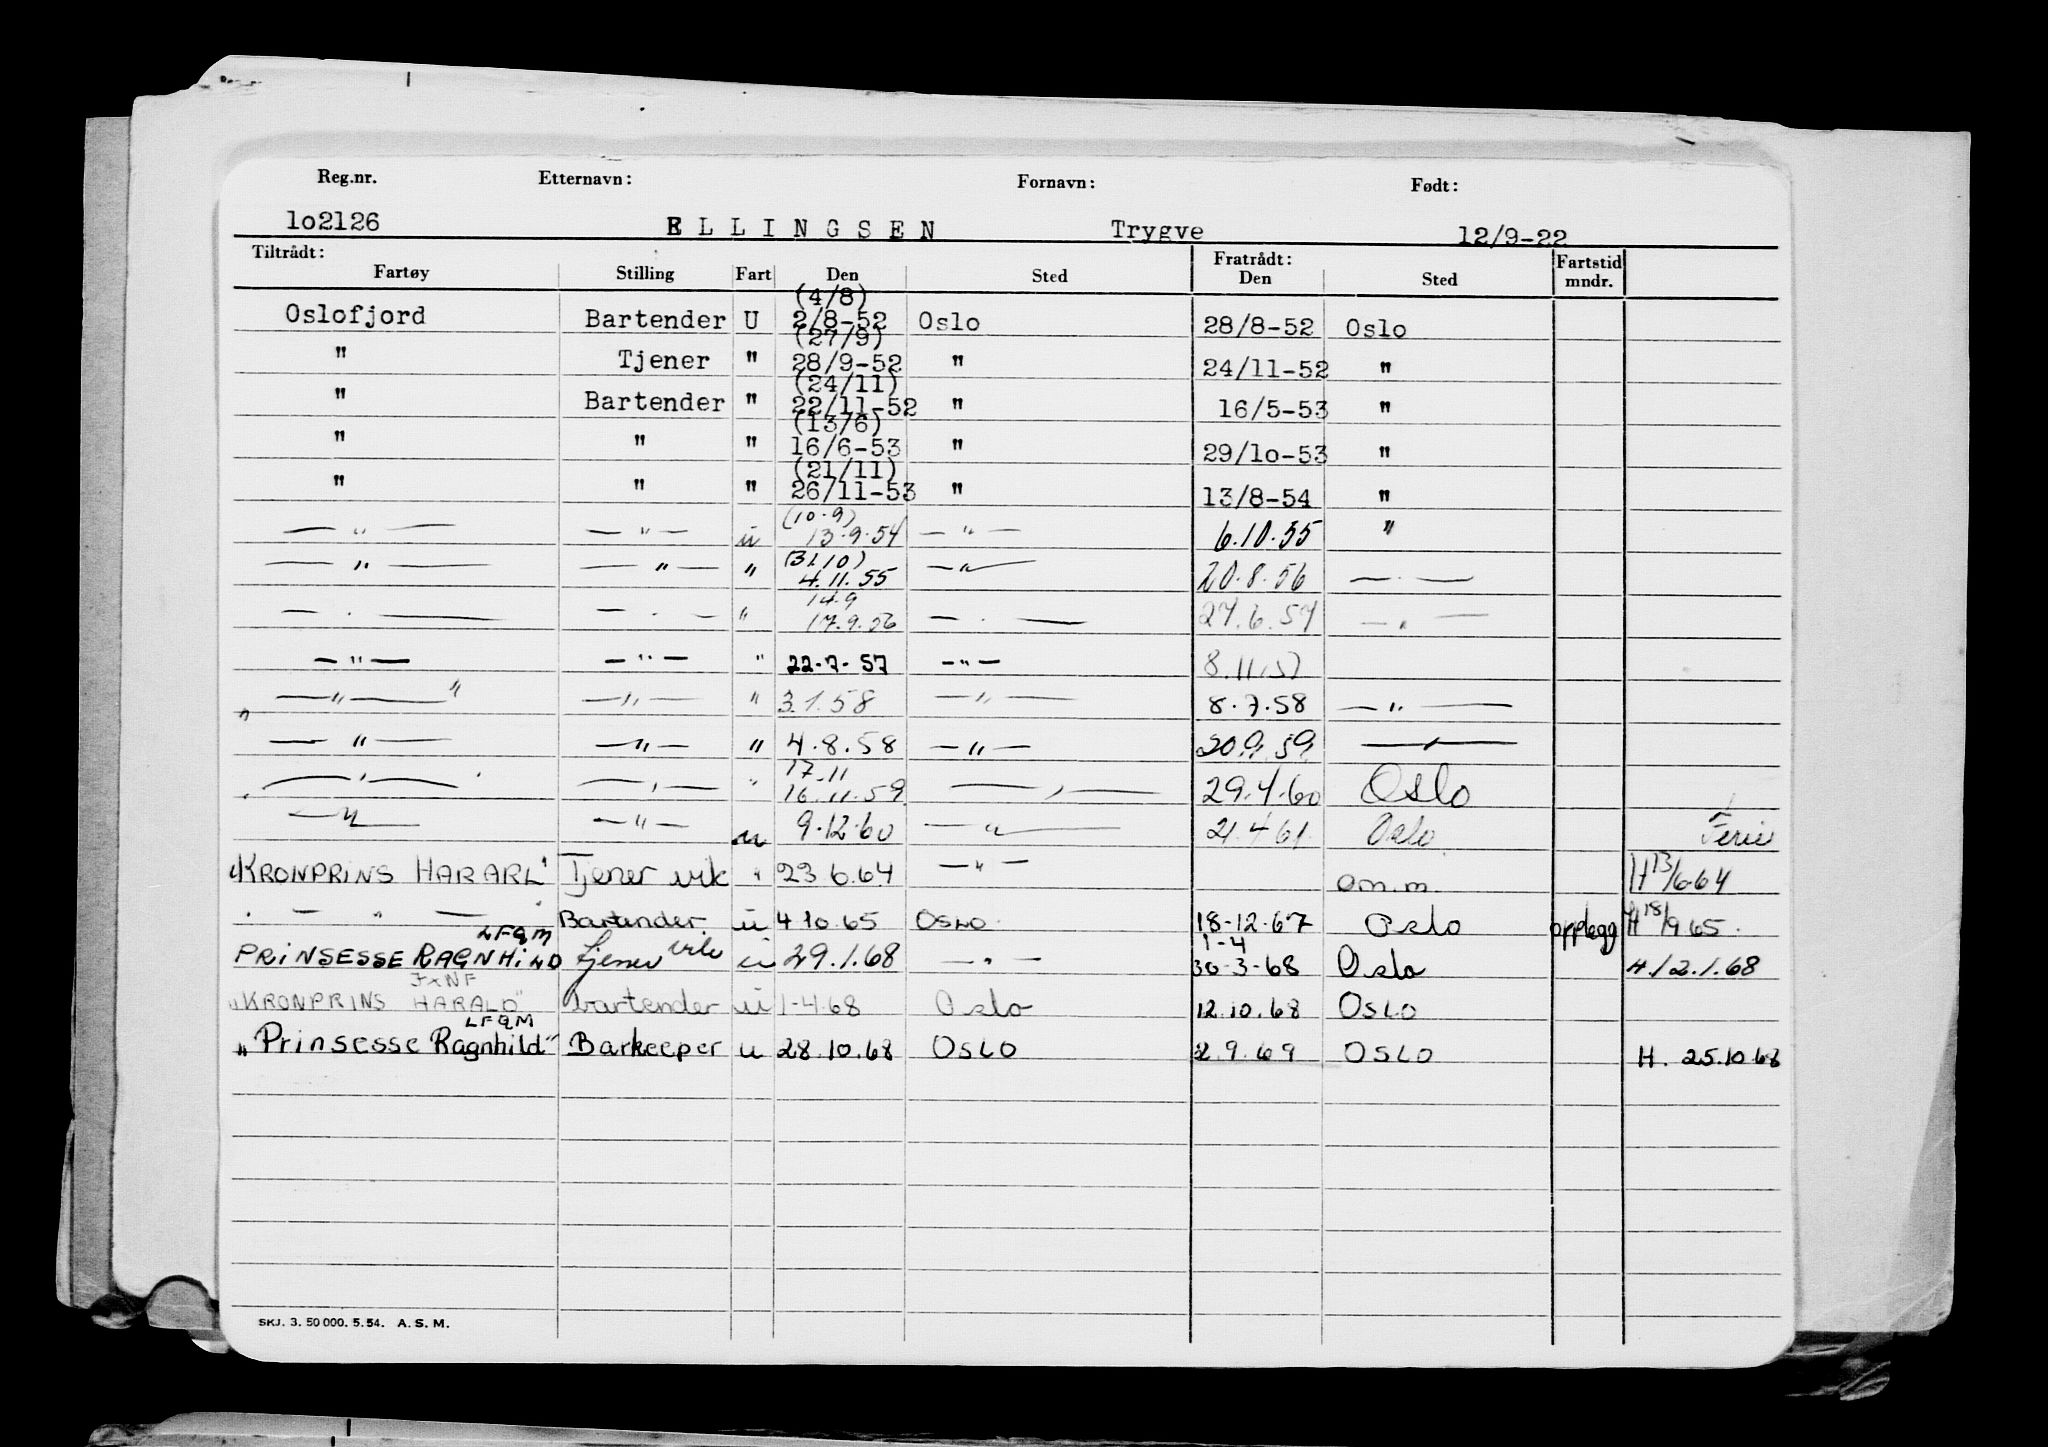 Reg.nr. Etternavn: Fornavn: Født:
lo2126 ELLINGSEN Trygve 12/9-22
Tiltrådt: Fratrådt: Fartstid
Fartøy Stilling Fart Den Sted Den Sted mndr.
(4/8)
Oslofjord Bartender U 2/8-52 Oslo 28/8-52 Oslo
(27/9)
" Tjener " 28/9-52 " 24/11-52 "
(24/11)
" Bartender " 22/11-52 " 16/5-53 "
(13/6)
" " " 16/6-53 " 29/lo-53 "
(21/11)
" " " 26/11-53 " 13/8-54 "
(10.9)
— " — — " — u 13.9.54 — " — 6.10.55 "
(31.10)
— " — — " — " 4.11.55 — " — 20.8.56 — . —
14.9
— . — — . — " 17.9.56 — . — 27.6.57 — " —
— " — — " — " 22-7-57 — " — 8.11.57
" — " — " — " — " 3.1.58 — " — 8.7.58 — " —
— " — — " — " 4.8.58 — " — 20.9.59 — " —
17.11
" — " — — " — " 16.11.59 — " — 29.4.60 Oslo
— " — — " — u 9.12.60 — " — 21.4.61. Oslo Ferie
"KRONPRINS HARARL" Tjener vik " 23 6.64 — " — am.m. H 13/6.64
" — " — " Bartender. u 4 10.65 OSLO 18-12.67 Oslo opplegg H 18/9 65.
LFQM 1-4
PRINSESSE RAGNHILD Tjener vik u 29.1.68 — " — 30-3-68 Oslo H./2.1.68
JXNF
"KRONPRINS HARALD" bartender u 1-4.68 Oslo 12.10.68 OSLO
LFQM
"Prinsesse Ragnhild" Barkeeper u 28.10.68 OSLO 2.9.69 OSLO H. 25.10.68
SKJ. 3. 50 000. 5. 54. A. S. M.